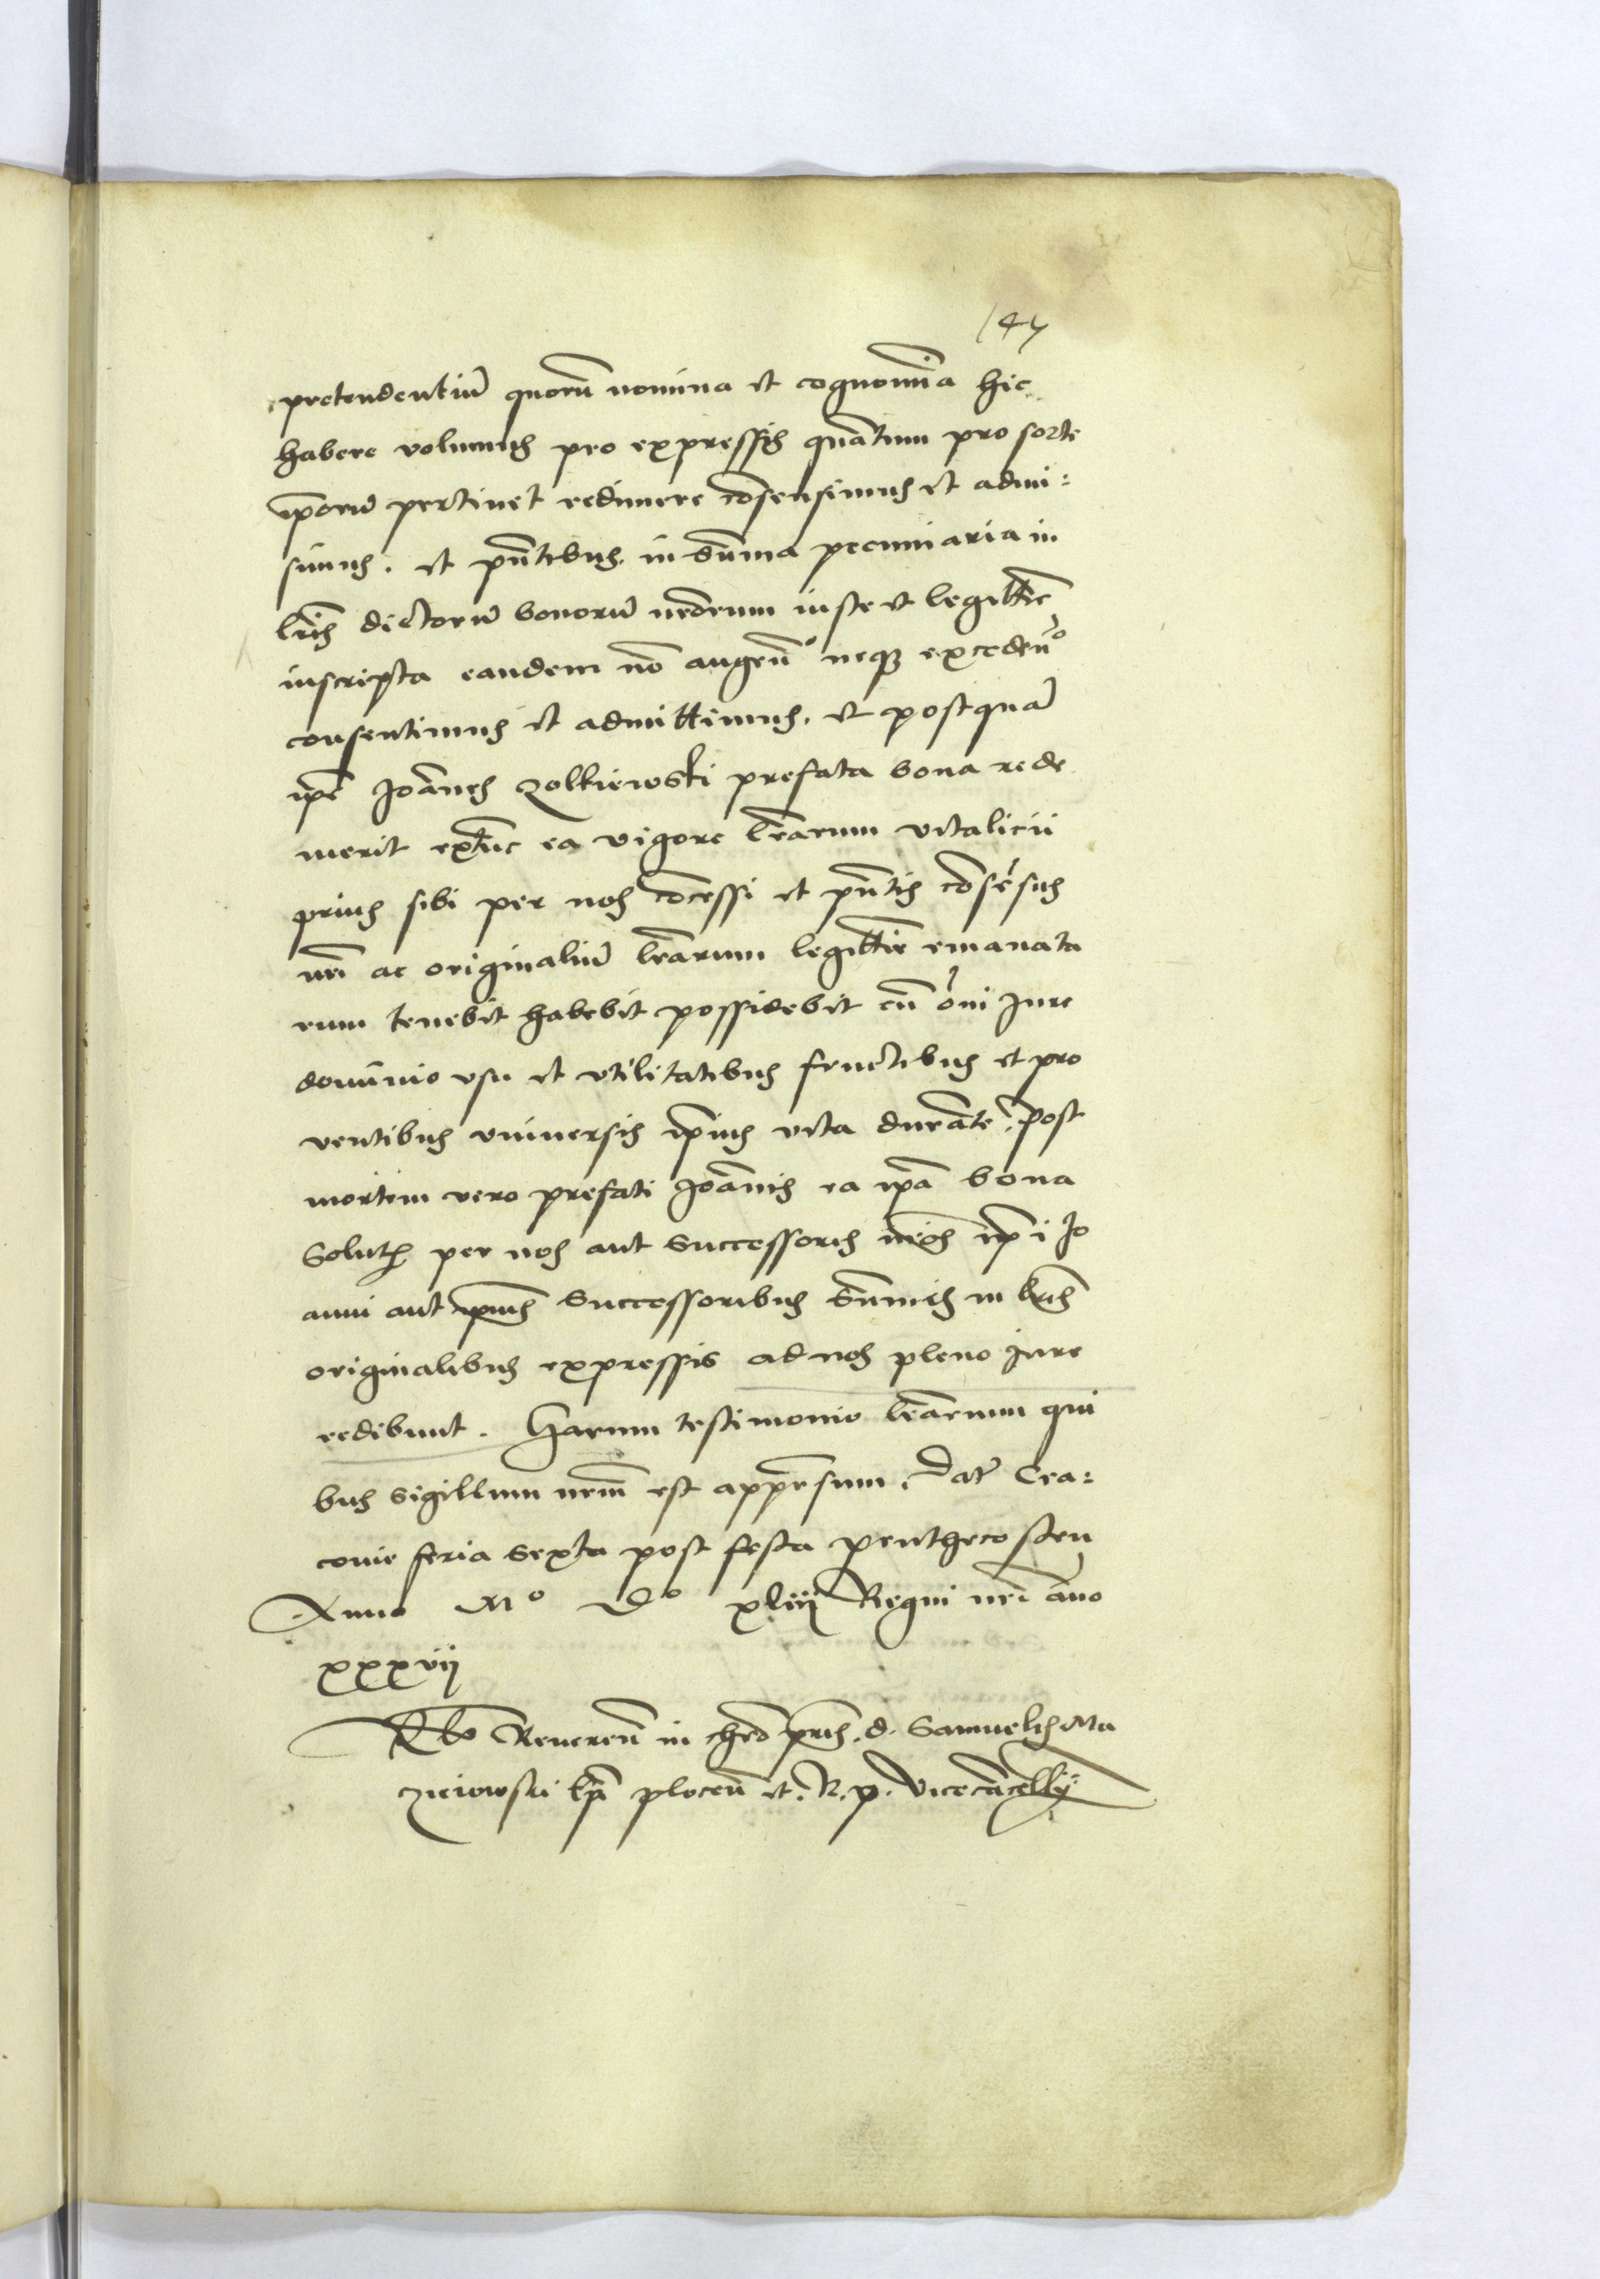 147
pretendentiū quorū nomina et cognomīa hic
habere volumus pro expressis quātum pro sorte
ip̄orū pertinet redimere cōsensimus et admi:
simus. et pn̄tibus. in sūma pecuniaria in
lr̄is dictorū bonorū eorum iuste et legittīe
inscripta eandem nō augen̄o neq3 exceden̄o
consentimus et admittimus. et postquā
ip̄e Ioānes Zolkiewski prefata bona rede
merit extūc ea vigore lr̄arum vitalicii
prius sibi per nos cōcessi et pn̄tis cōsēsus
nr̄i ac originaliū lr̄arum legittīe emanata
rum tenebit habebit possidebit cū ōni Iure
dominio vsu et vtilitatibus fructibus et pro
ventibus vniuersis ip̄ius vita durāte. post
mortem vero prefati Ioānis ea ip̄a bona
Solut; per nos aut Successores nr̄os ip̄i Io
anni aut ip̄ius Successoribus Sūmis in lr̄is
originalibus expressis ad nos pleno Iure
redibunt. Harum testimonio lr̄arum qui
bus Sigillum nr̄m est appensum. Dat̄ Cra:
couie feria Sexta post festa penthecosten
Anno Mo Do xliij Regni nr̄i āno
xxxvij
Rlō Reueren̄ in chr̄o pr̄is. d. Samuelis Ma
czieiowski Ep̄i plocen̄ et. R. p. Vicecācellij